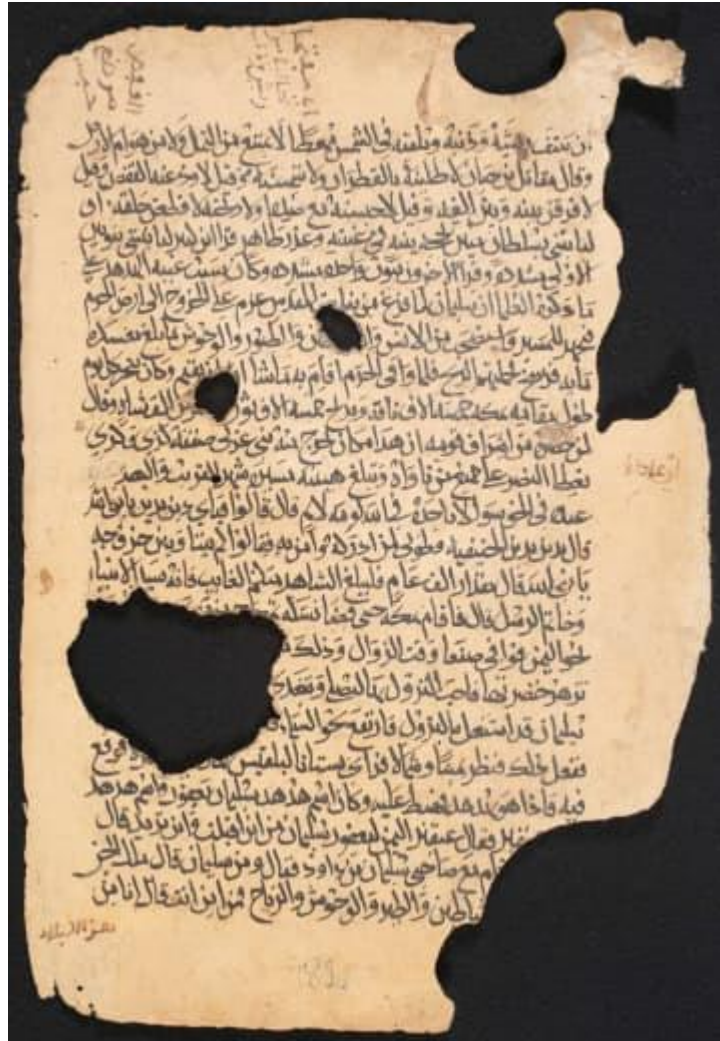 ان ينتف ريشه وذنبه ويلقيه في الشمس ممعطا لا يمتنع من النمل ولا من هوام الارض
وقال مقاتل بن حيان لاطلينه بالقطران ولاشمسنه وقيل لاودعنه القفص وقيل
لافرقن بينه وبين الفه وقيل لاحبسنه مع ضده او لاذبحنه لاقطعن حلقه او
لياتيني بسلطان مبين بحجة بينه في غيبته وعذر ظاهر قرا ابن كثير لياتينني بنونين
الاولى مشدده وقرا الاخرون بنون واحده مشدده وكان سبب غيبه الهدهد على
ما ذكره العلما ان سليمان لما فرغ من بنا بيت المقدس عزم على الخروج الى ارض الحرم
فتجهز للمسير واستصحب من الانس والطيور والوحوش ما بلغ معسكره
مايه فرسخ فحملتهم الريح فلما وافى الحرم اقام به ما شا ان يقيم وكان ينحر كل يوم
طول مقامه بمكه خمسه الاف ناقه ويذبح خمسه الاف ثور شاه وقال
لمن حضر من اشراف قومه ان هذا مكان يخرج منه نبي عربي صفته كذى وكذى
يعطا النصر على جميع من ناواه وتبلغ هيبته مسيره شهر القريب والبعيد
عنده في الحق سوا لا تاخذه في الله لومه لايم قال قالوا فباي دين يدين يا نبي الله
قال يدين بدين الحنيفيه وطوبى لمن ادركه وامن به فقالوا كم بيننا وبين خروجه
يا نبي الله قال مقدار الف عام فليبلغ الشاهد منكم الغايب فانه سيد الانبيا
وخاتم الرسل قال فاقام بمكه حتى قضى نسكه
نحو اليمن فوافى صنعا وقت الزوال وذلك
تزهر خضرتها فاحب النزول بها ليصلي ويتغدى
سليمان قد اشتغل بالنزول فارتفع نحو السما
ففعل ذلك فنظر يمينا وشمالا فراى بستانا لبلقيس فوقع
فيه فاذا هو بهدهد فهبط عليه وكان اسم هدهد سليمان يعفور واسم هدهد
عنفير فقال عنفير اليمن ليعفور سليمان من اين اقبلت واين تريد قال
الشام مع صاحبي سليمان بن داود فقال ومن سليمان قال ملك الجن
والشياطين والطير والوحوش والرياح فمن اين انت قال انا من
هذه البلاد